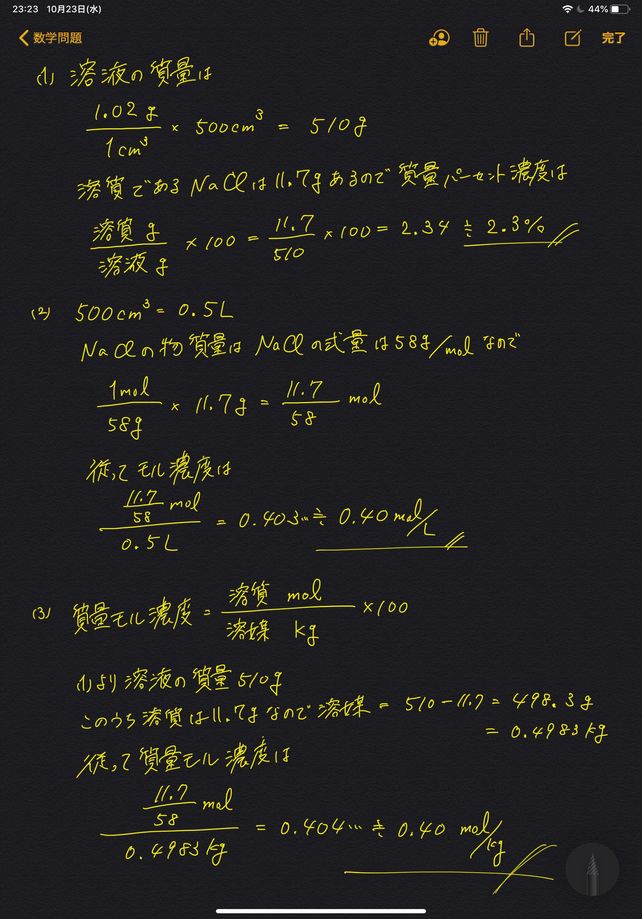 23:23 10月23日(水) 44%
数学問題 完了
(1) 溶液の質量は
1.02g/1cm³ × 500cm³ = 510g
溶質であるNaClは11.7gあるので質量パーセント濃度は
溶質g/溶液g × 100 = 11.7/510 × 100 = 2.34 ≒ 2.3%
(2) 500cm³ = 0.5L
NaClの物質量はNaClの式量は58g/molなので
1mol/58g × 11.7g = 11.7/58 mol
従ってモル濃度は
11.7/58 mol/0.5L = 0.403… ≒ 0.40 mol/L
(3) 質量モル濃度 = 溶質 mol/溶媒 kg ×100
(1)より溶液の質量510g
このうち溶質は11.7gなので溶媒 = 510-11.7 = 498.3g
= 0.4983kg
従って質量モル濃度は
11.7/58 mol/0.4983kg = 0.404… ≒ 0.40 mol/kg